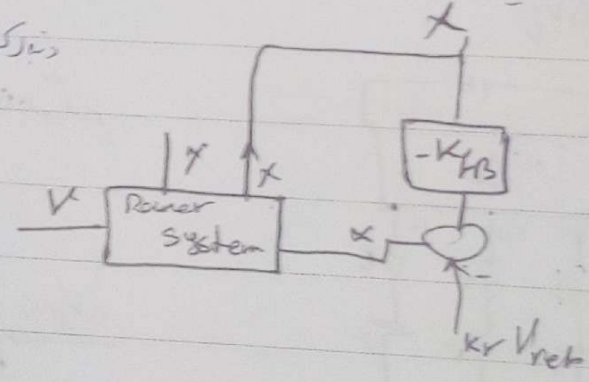 X
-K_FB
Y
X
V
Power
System
α
-
Kr Vref